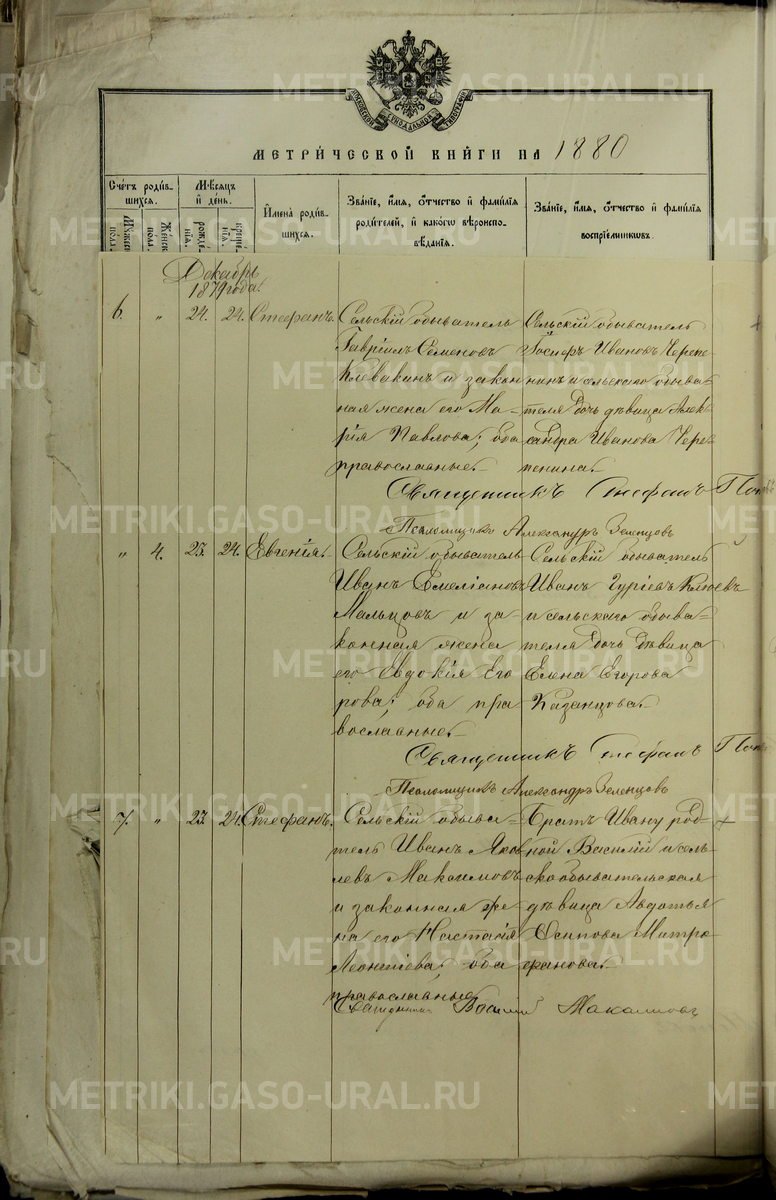 МОСКОВСКОЙ СУНОДАЛЬНОЙ ТИПОГРАФІИ
МЕТРИ́ЧЕСКОЙ КНИ́ГИ НА 1880
Сче́тъ роди́вшихся.
Му́жеска по́ла.
Же́нска по́ла.
Мѣ́сяцъ и҆ де́нь.
рожде́нія.
креще́нія.
И҆мена̀ роди́вшихся.
Зва́ніе, и҆́мя, ѻ҆́тчество и҆ фами́лія роди́телей, и҆ како́гѡ вѣроисповѣ́данія.
Зва́ніе, и҆́мя, ѻ҆́тчество и҆ фами́лія воспріе́мниковъ.
Декабрь
1879 года.
6. " 24. 24. Стефанъ.
Сельскій обыватель
Гавріилъ Семеновъ
Клевакинъ и закон-
ная жена его Ма-
рія Павлова; оба
православные.
Сельскій обыватель
Іосифъ Ивановъ Черепе-
нинъ и сельскаго обыва-
теля дочь дѣвица Алек-
сандра Иванова Чере-
пенина.
Священникъ Стефанъ
Псаломщикъ Александръ Зеленцовъ
" 4. 23. 24. Евгенія.
Сельскій обыватель
Иванъ Емеліановъ
Мальцовъ и за-
конная жена
его Евдокія Его-
рова; оба пра-
вославные.
Сельскій обыватель
Иванъ Гуріевъ Клюевъ
и сельскаго обыва-
теля дочь дѣвица
Елена Егорова
Казанцова.
Священникъ Стефанъ
Псаломщикъ Александръ Зеленцовъ
7. " 23. 24. Стефанъ.
Сельскій обыва-
тель Иванъ Яков-
левъ Максимовъ
и законная же-
на его Настасія
Леонтіева; оба
православные.
Братъ Ивану род-
ной Василій и сель-
скообывательская
дѣвица Авдотья
Осипова Митро-
фанова.
Священникъ Василій Макаимовъ
METRIKI.GASO-URAL.RU